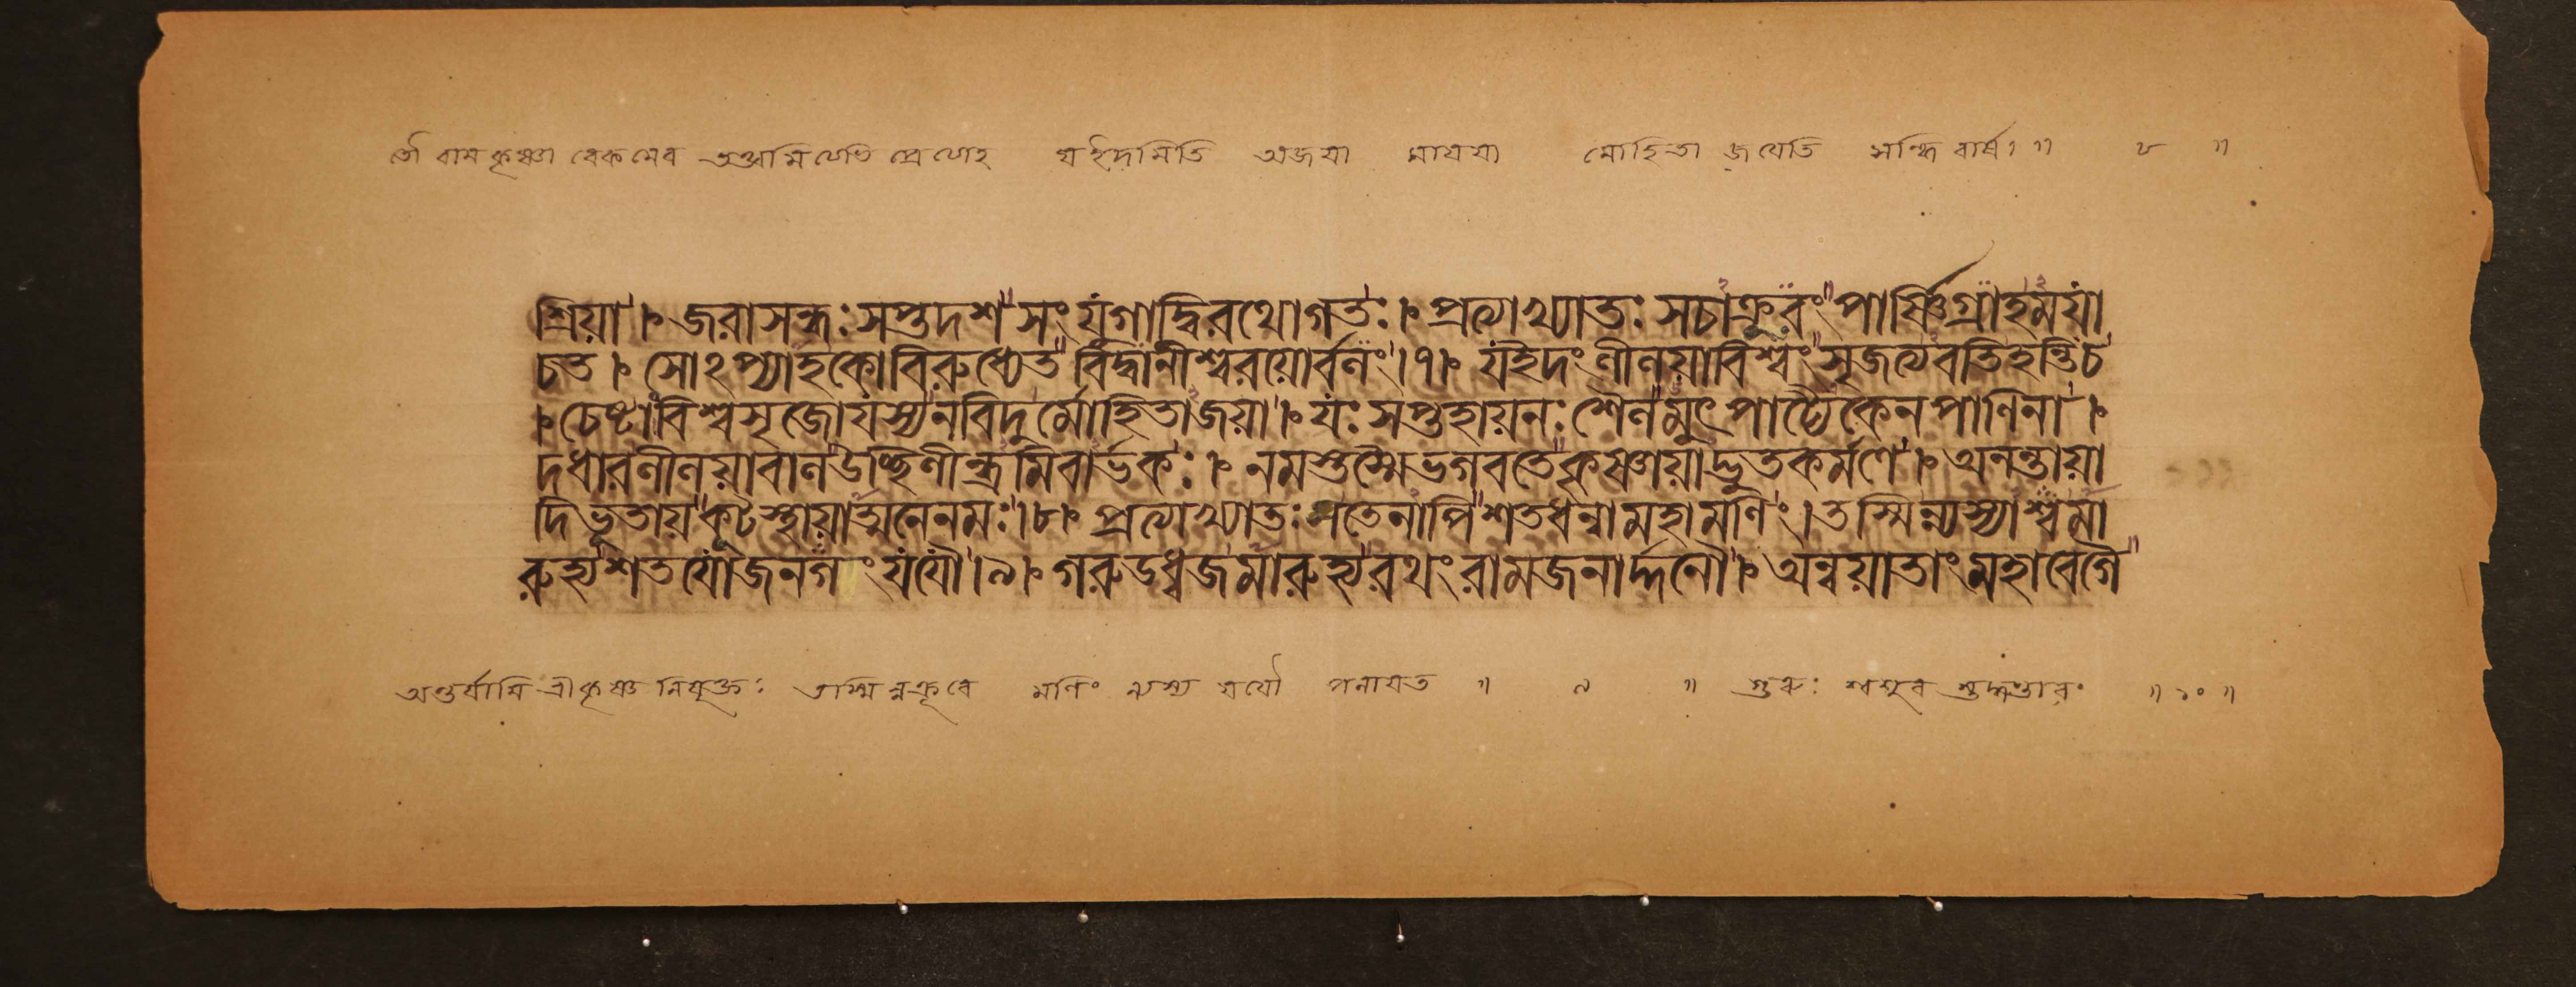 তৌ রামকৃষ্ণা বেকমেব
শ্রিয়া । জরাসন্ধঃ সপ্তদশ সংযুগাদ্বিরথোগতঃ । প্রত্যাখ্যাতঃ সচাক্রূরং পার্ষ্ণিগ্রাহময়া
চত । সোঽপ্যাহকোবিরুধ্যেত বিদ্বানীশ্বরয়োর্বলং ।৭। যইদংলীলয়াবিশ্বং সৃজত্যবতিহন্তিচ
। চেষ্টাংবিশ্বসৃজোযস্যনবিদুর্মোহিতাজয়া । যঃ সপ্তহায়নঃ শৈলমুৎপাট্যৈকেনপাণিনা ।
দধারলীলয়াবালউচ্ছিলীন্ধ্রমিবার্ভকঃ । নমস্তস্মৈভগবতেকৃষ্ণায়াদ্ভুতকর্মণে । অনন্তায়া
দিভূতায়কূটস্থায়াত্মনেনমঃ ।৮। প্রত্যাখ্যাতঃ সতেনাপিশতধন্বামহামণিং । তস্মিন্ন্যস্যাশ্বমা
রুহ্যশতযোজনগংযযৌ ।৯। গরুডধ্বজমারুহ্যরথংরামজনার্দ্দনৌ । অন্বয়াতাংমহাবেগৈ
অন্তর্যামি শ্রীকৃষ্ণ নিযুক্তঃ তস্মিন্নক্রূরে মণিং ন্যস্য যযৌ পলাযত ॥ ৯ ॥ গুরুঃ শ্বশুর ॥ ১০ ॥